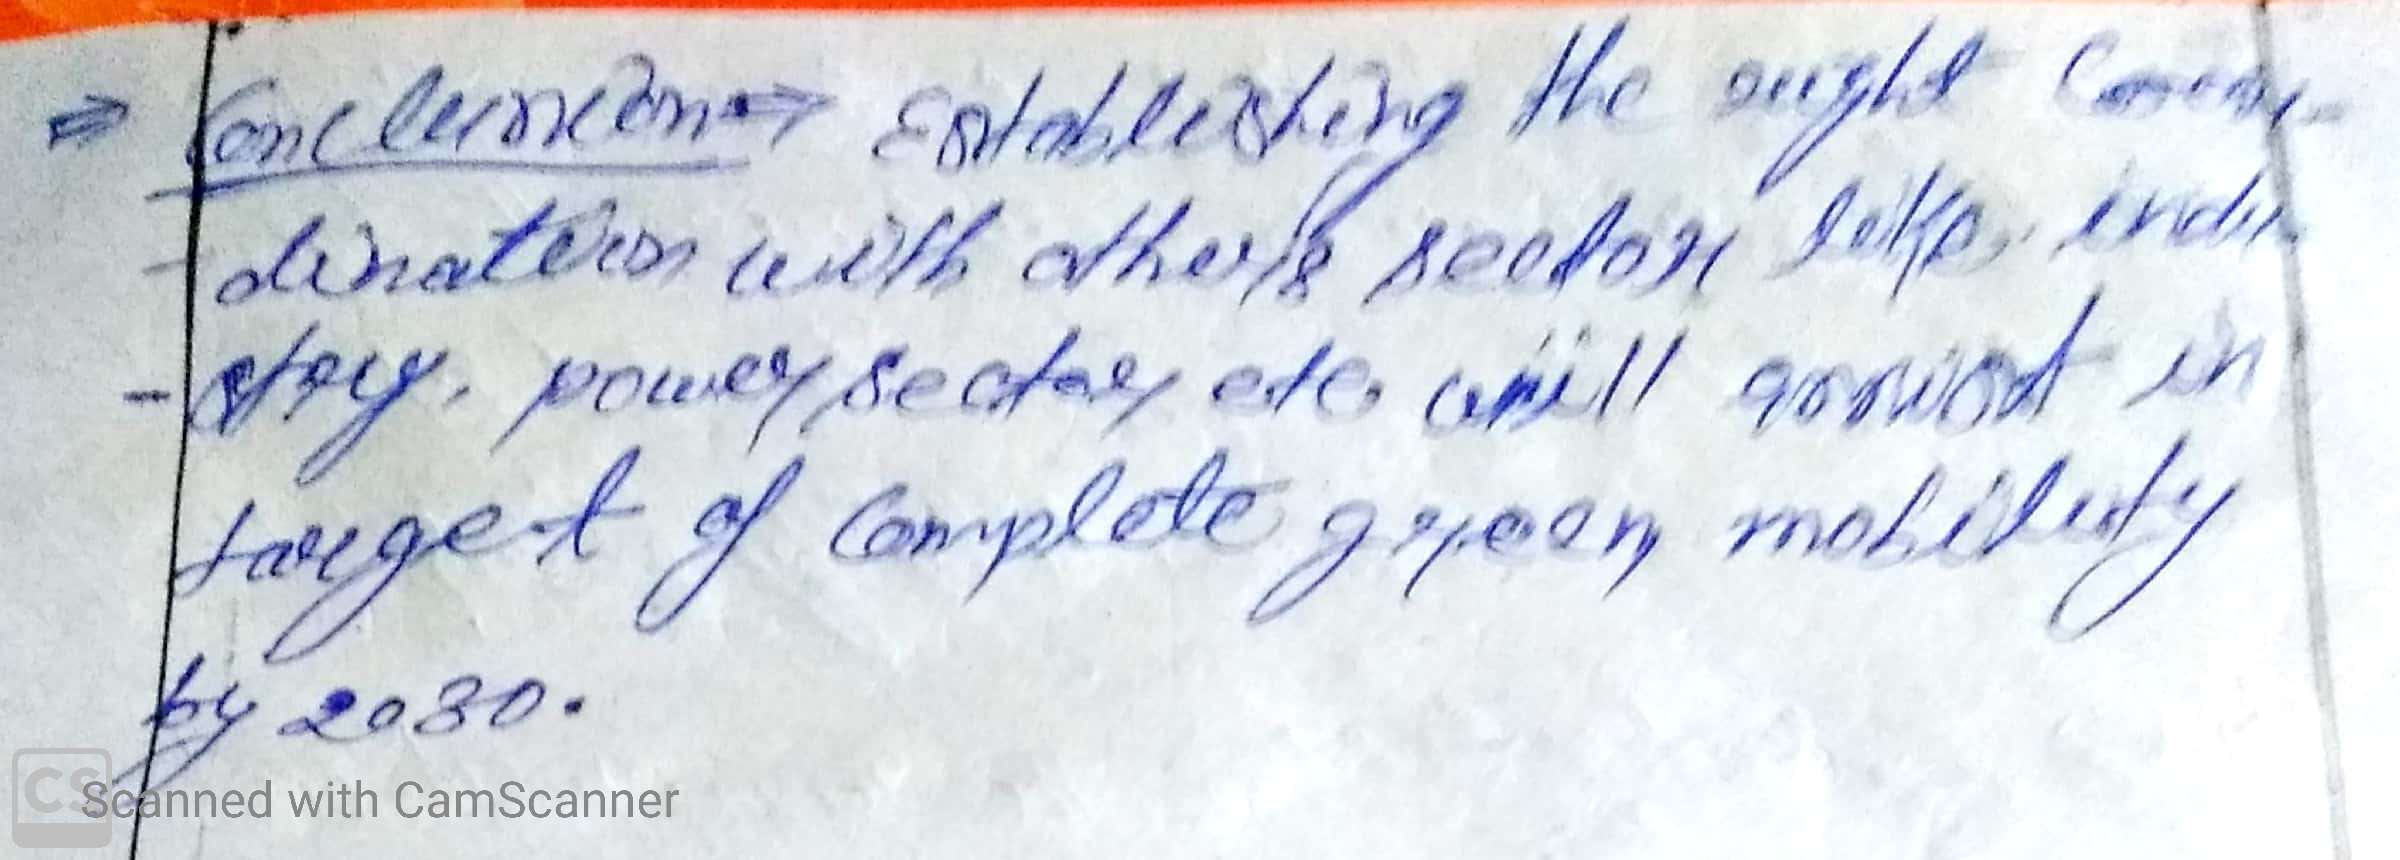 ⇒ Conclusion → Establishing the right Coor-
-dination with other sector like, indu
-stry, power sector etc will assist in
target of Complete green mobility
by 2030.
CS Scanned with CamScanner